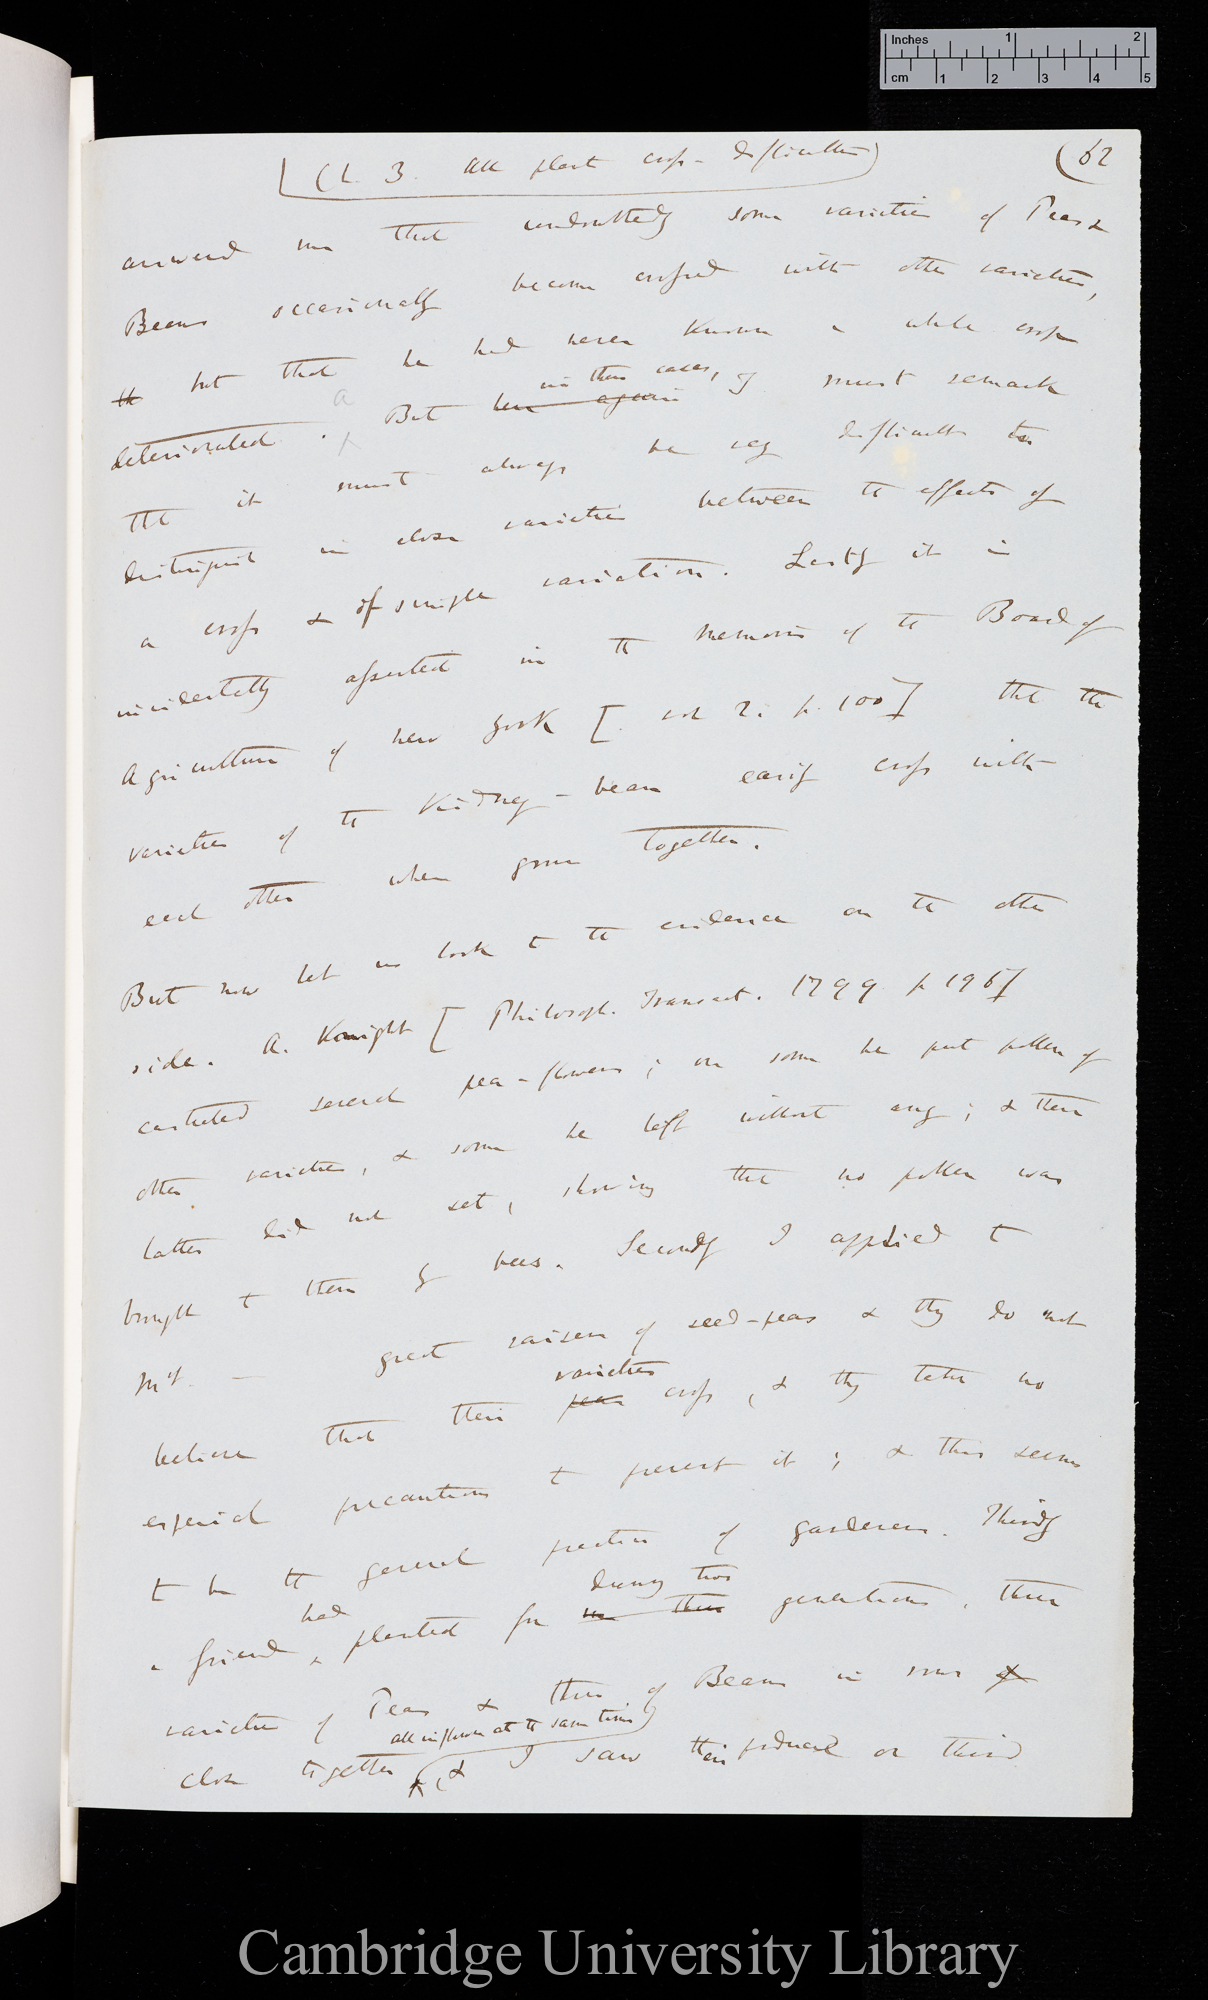 Inches 1 2
cm 1 2 3 4 5
Ch. 3. All plants cross - difficulties
(62
answered me that undoubtedly some varieties of Peas &
Beans occasionally become crossed with other varieties,
th but that he had never known a whole crop
A
in these cases,
deteriorated. But here again I must remark
tht it must always be very difficult to
distinguish in close varieties between the effects of
a cross & of simple variation. Lastly it is
incidentally asserted in the Memoirs of the Board of
Agriculture of New York [vol 2. p. 100] that the
varieties of the Kidney-bean easily cross with
each other when grown together.
But now let us look to the evidence on the other
side. A. Knight [Philosoph. Transact. 1799 p 196]
castrated several pea-flowers; on some he put pollen of
other varieties, & some he left without any; & these
latter did not set, showing that no pollen was
brought to them by bees. Secondly I applied to
Mrs. — great raisers of seed-peas & they do not
varieties
believe that their peas cross, & they take no
especial precautions to prevent it; & this seems
to be the general practice of gardeners. Thirdly
had during two
a friend planted for three generations, three
varieties of Peas & three of Beans in rows of
all in flower at the same time
close together, & I saw their produce or third
Cambridge University Library